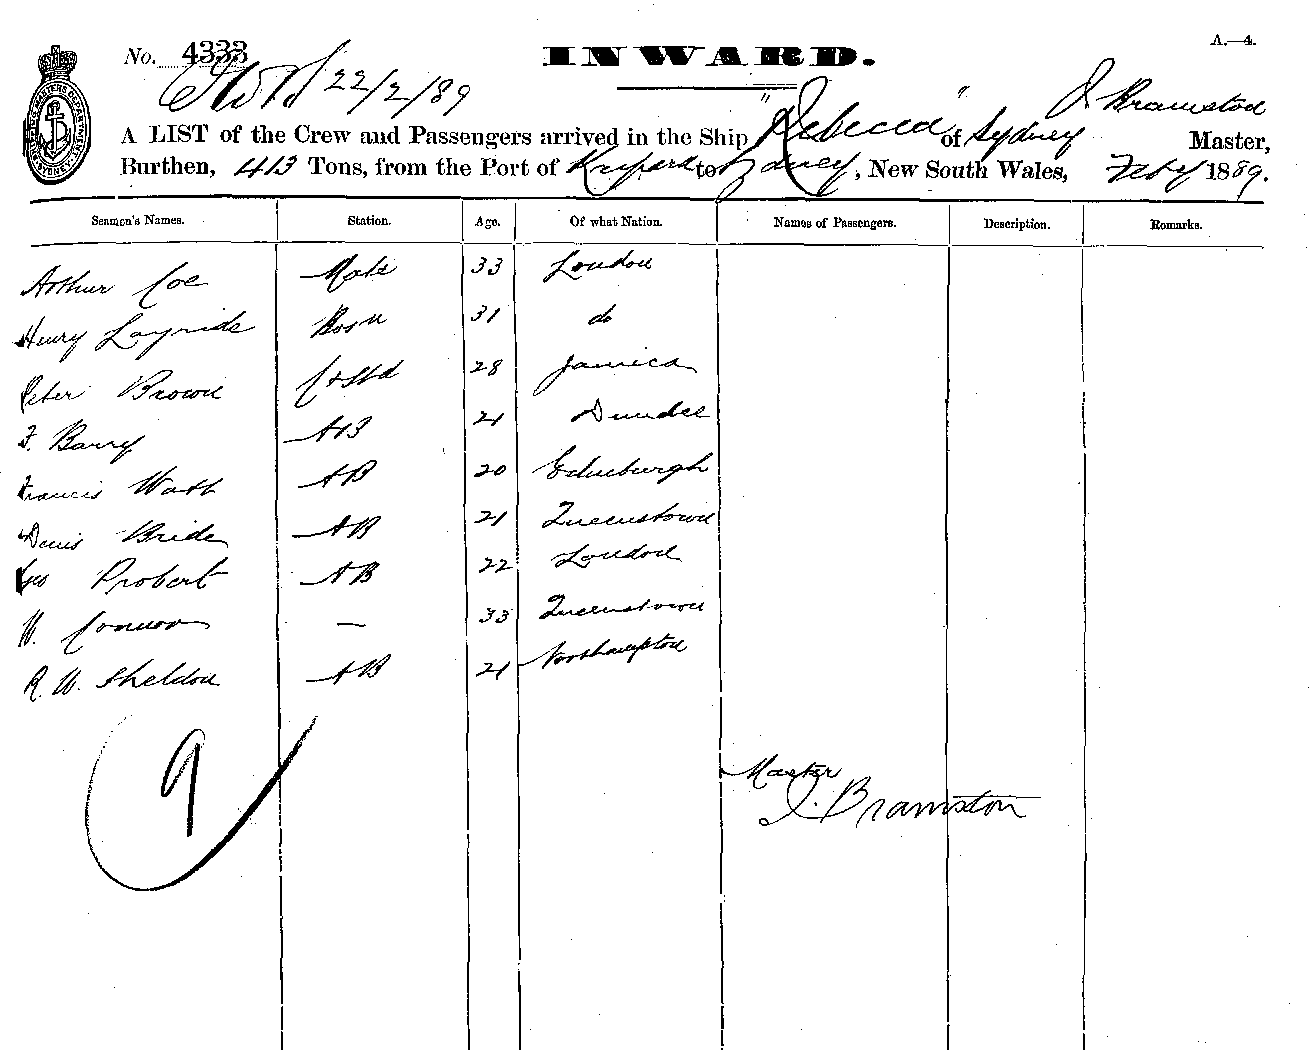 A.—4.
No. 4333
INWARD.
22/2/89
J Bramston
A LIST of the Crew and Passengers arrived in the Ship "Rebecca" of Sydney Master,
Burthen, 413 Tons, from the Port of to Sydney, New South Wales, Feby 1889.
Seamen's Names. Station. Age. Of what Nation. Names of Passengers. Description. Remarks.
Arthur Coe Mate 33 London
Henry Bosn 31 do
Peter Brown C & Std 28 Jamica
F. Barry AB 21 Dundee
Francis AB 20 Edinburgh
Denis Bride AB 21 Queenstown
Geo Probert AB 22 London
W. Connor — 33 Queenstown
R. W. Sheldon AB 21 Northampton
9
Master
J. Bramston